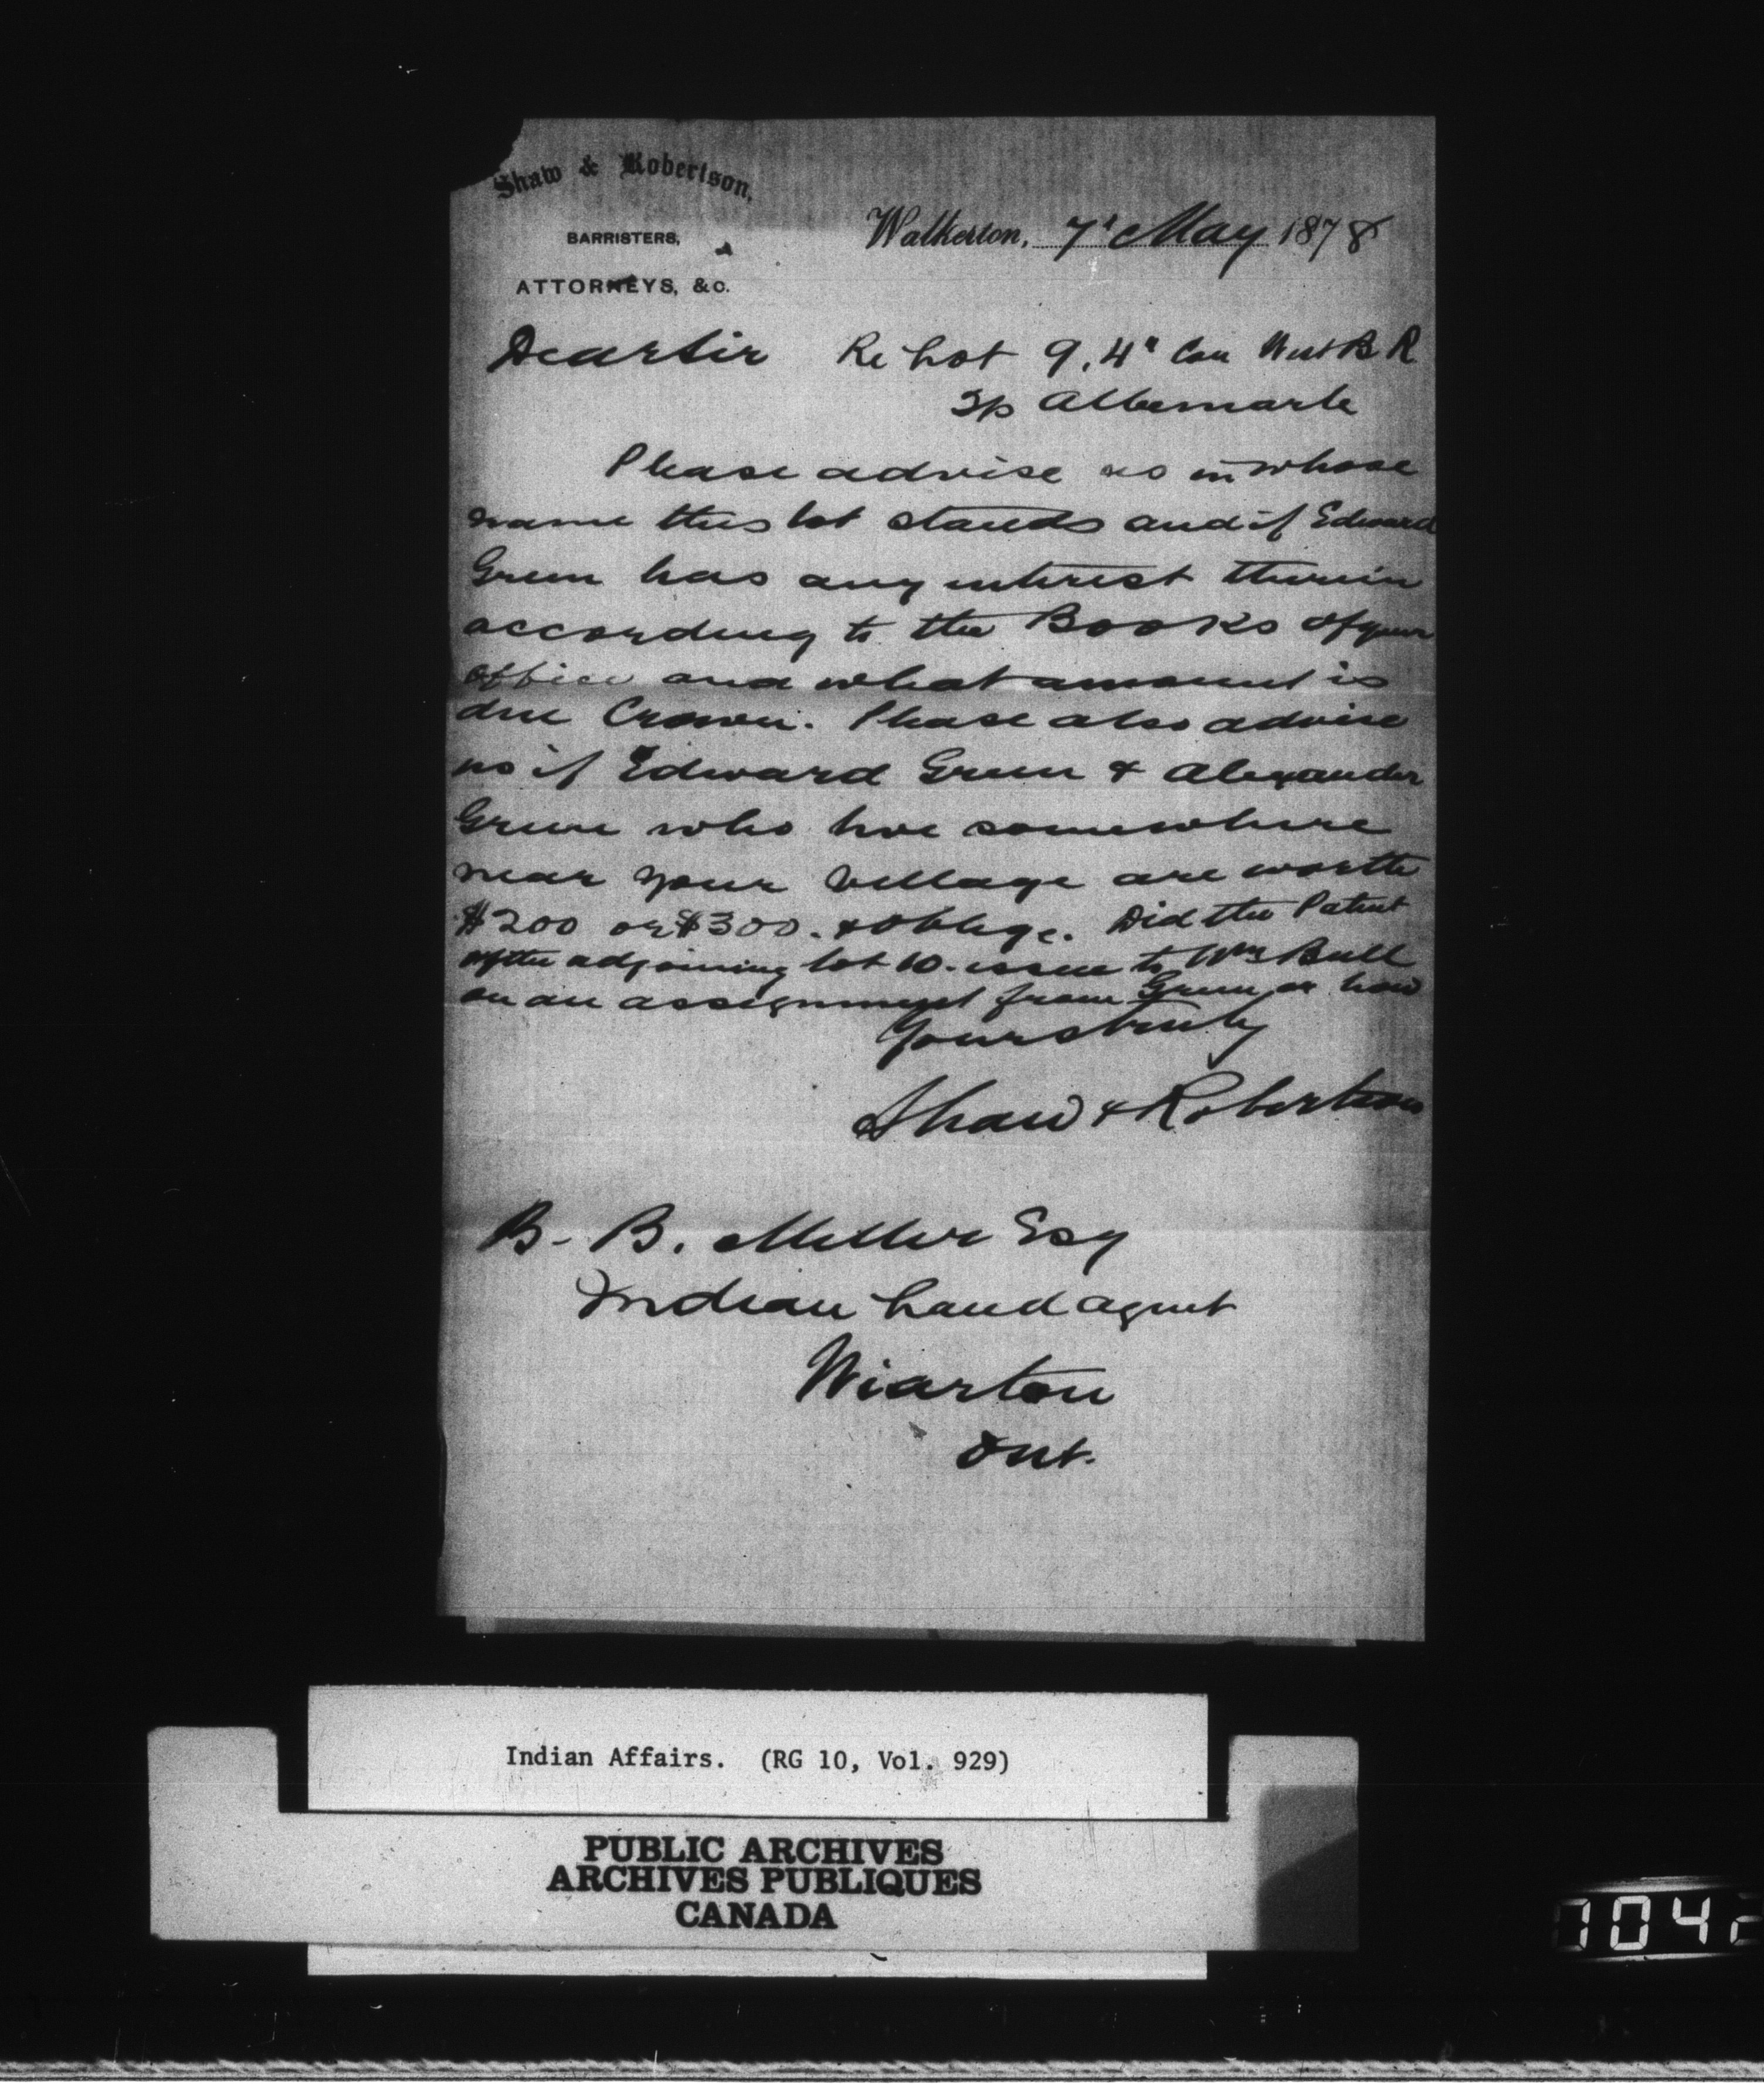 Shaw & Robertson,
BARRISTERS,
ATTORNEYS, &c.
Walkerton, 7' May 1878
Dear Sir Re Lot 9, 4" Con West B R
Tp Albemarle
Please advise us in whose
name this lot stands and if Edward
Green has any interest therein
according to the Books of your
office and what amount is
due Crown. Please also advise
us if Edward Green & Alexander
Green who live somewhere
near your village are worth
$200 or $300. & oblige. Did the Patent
of the adjoining lot 10. issue to Wm Bull
on an assignment from Green or how
Yours truly
Shaw & Robertson
B. B. Miller Esq
Indian Land agent
Wiarton
Ont.
Indian Affairs. (RG 10, Vol. 929)
PUBLIC ARCHIVES
ARCHIVES PUBLIQUES
CANADA